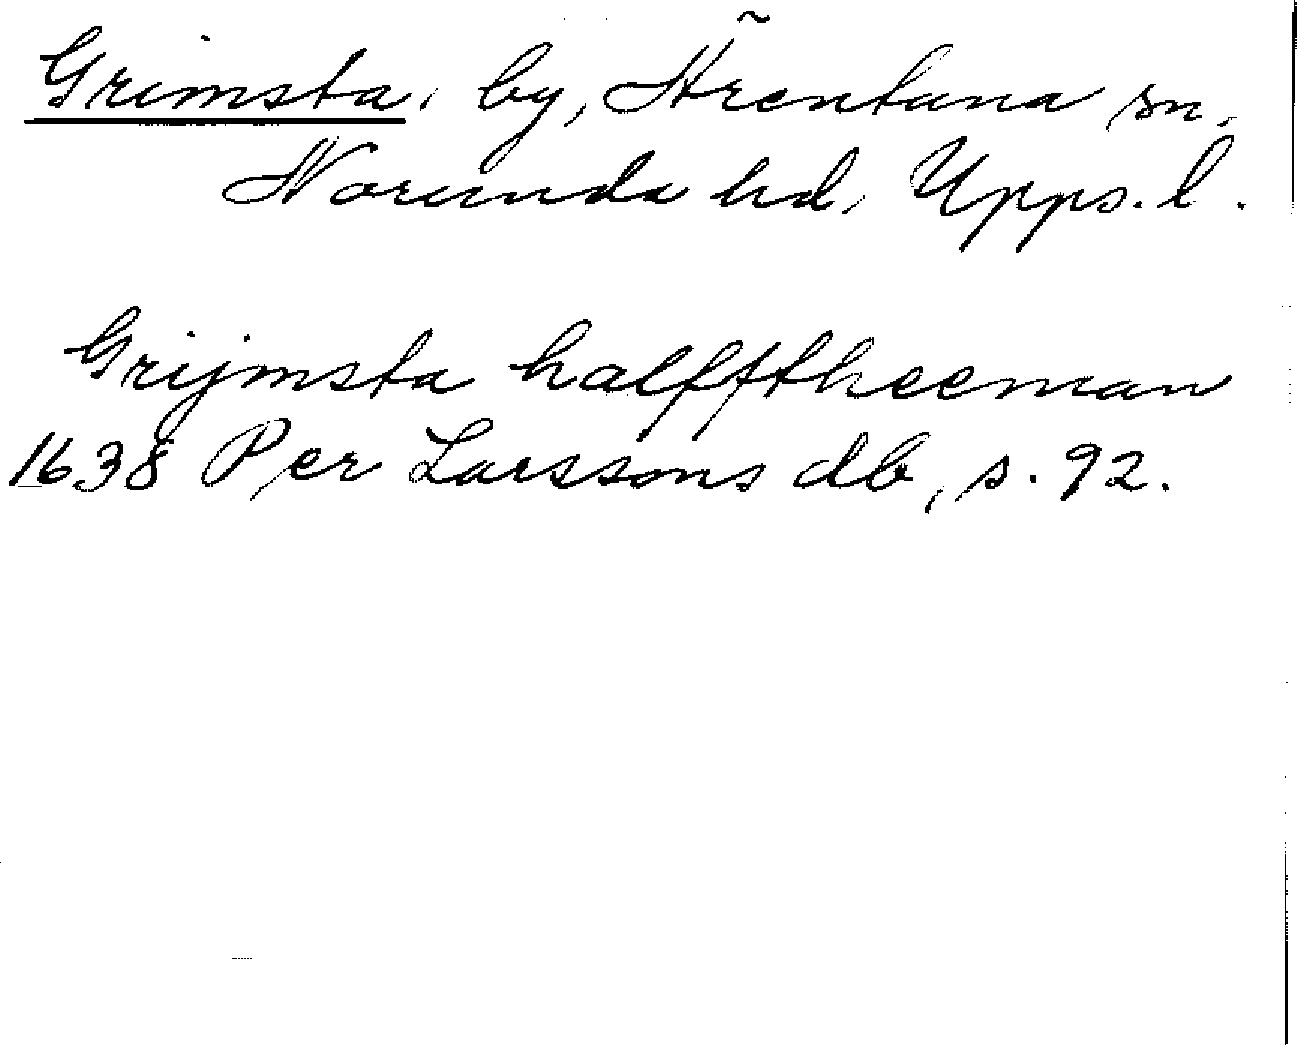 Grimsta, by, Ärentuna sn,
Norunda hd, Upps. l.
Grijmsta halffttheeman
1638 Per Larssons db, s. 92.